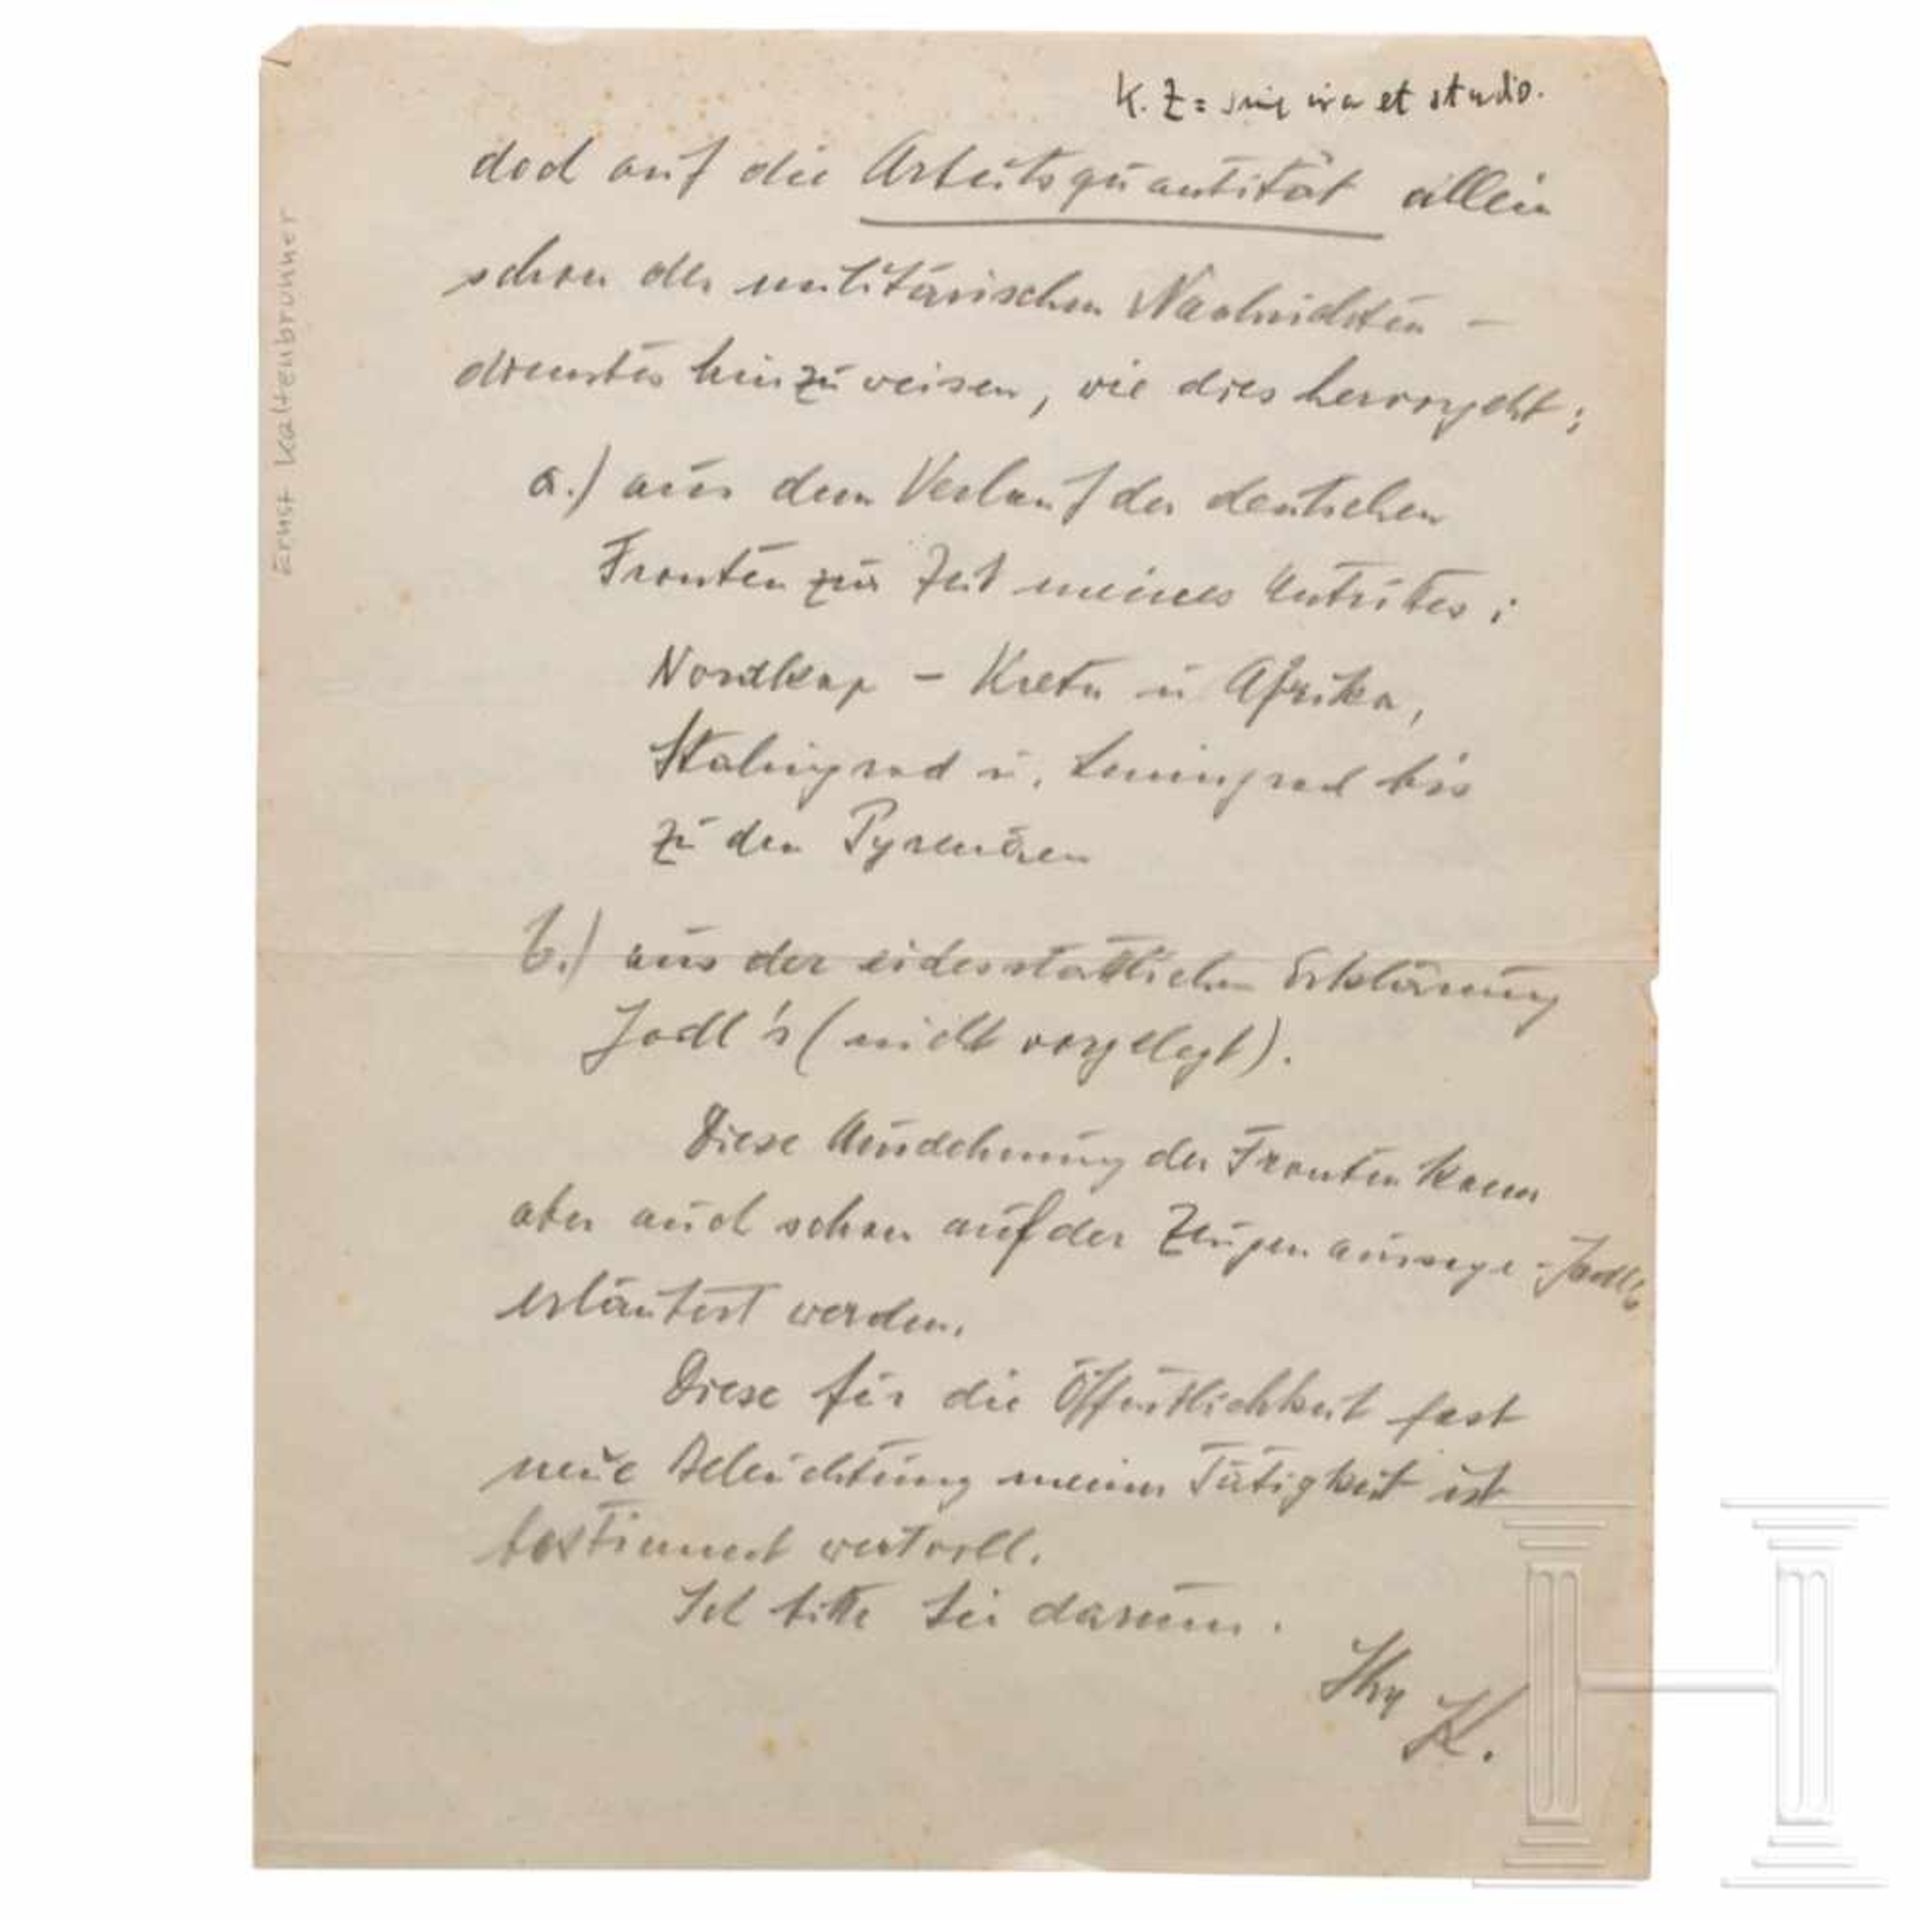 K. Z = sine ira et studio.
doch auf die Arbeitsquantität allein
schon des militärischen Nachrichten -
dienstes hinzuweisen, wie dies hervorgeht:
a.) aus dem Verlauf der deutschen
Fronten zur Zeit meines Antrittes:
Nordkap - Kreta u Afrika,
Stalingrad u. Leningrad bis
zu den Pyrenäen
b.) aus der eidesstattlichen Erklärung
Jodl's (nicht vorgelegt).
Diese Ausdehnung der Fronten kann
aber auch schon auf der Zeugenaussage Jodls
erläutert werden.
Diese für die Öffentlichkeit fast
neue Beleuchtung meiner Tätigkeit ist
bestimmt wertvoll.
Ich bitte Sie darum.
Ihr K.
Ernst Kaltenbrunner